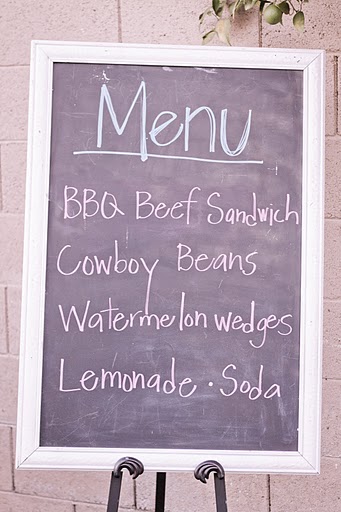 Menu
BBQ Beef Sandwich
Cowboy Beans
Watermelon wedges
Lemonade · Soda